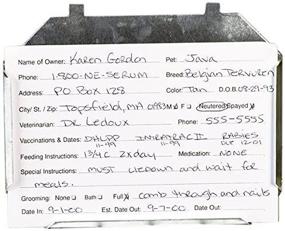 Name of Owner: Karen Gordon Pet: Java
Phone: 1-800-NE-SERUM Breed: Belgian Tervuren
Address: PO Box 128 Color: Tan D.O.B. 08-29-93
City / St. / Zip: Topsfield, MA 01983 M F Neutered Spayed
Veterinarian: DR Ledoux Phone: 555-5555
Vaccinations & Dates: DHLPP 11-99 INTRATRAC II 11-99 RABIES DUE 12-01
Feeding Instructions: 1 3/4 C 2xday Medication: NONE
Special Instructions: must liedown and wait for
meals.
Grooming: None Bath Full comb through and nails
Date In: 9-1-00 Est. Date Out: 9-7-00 Date Out: